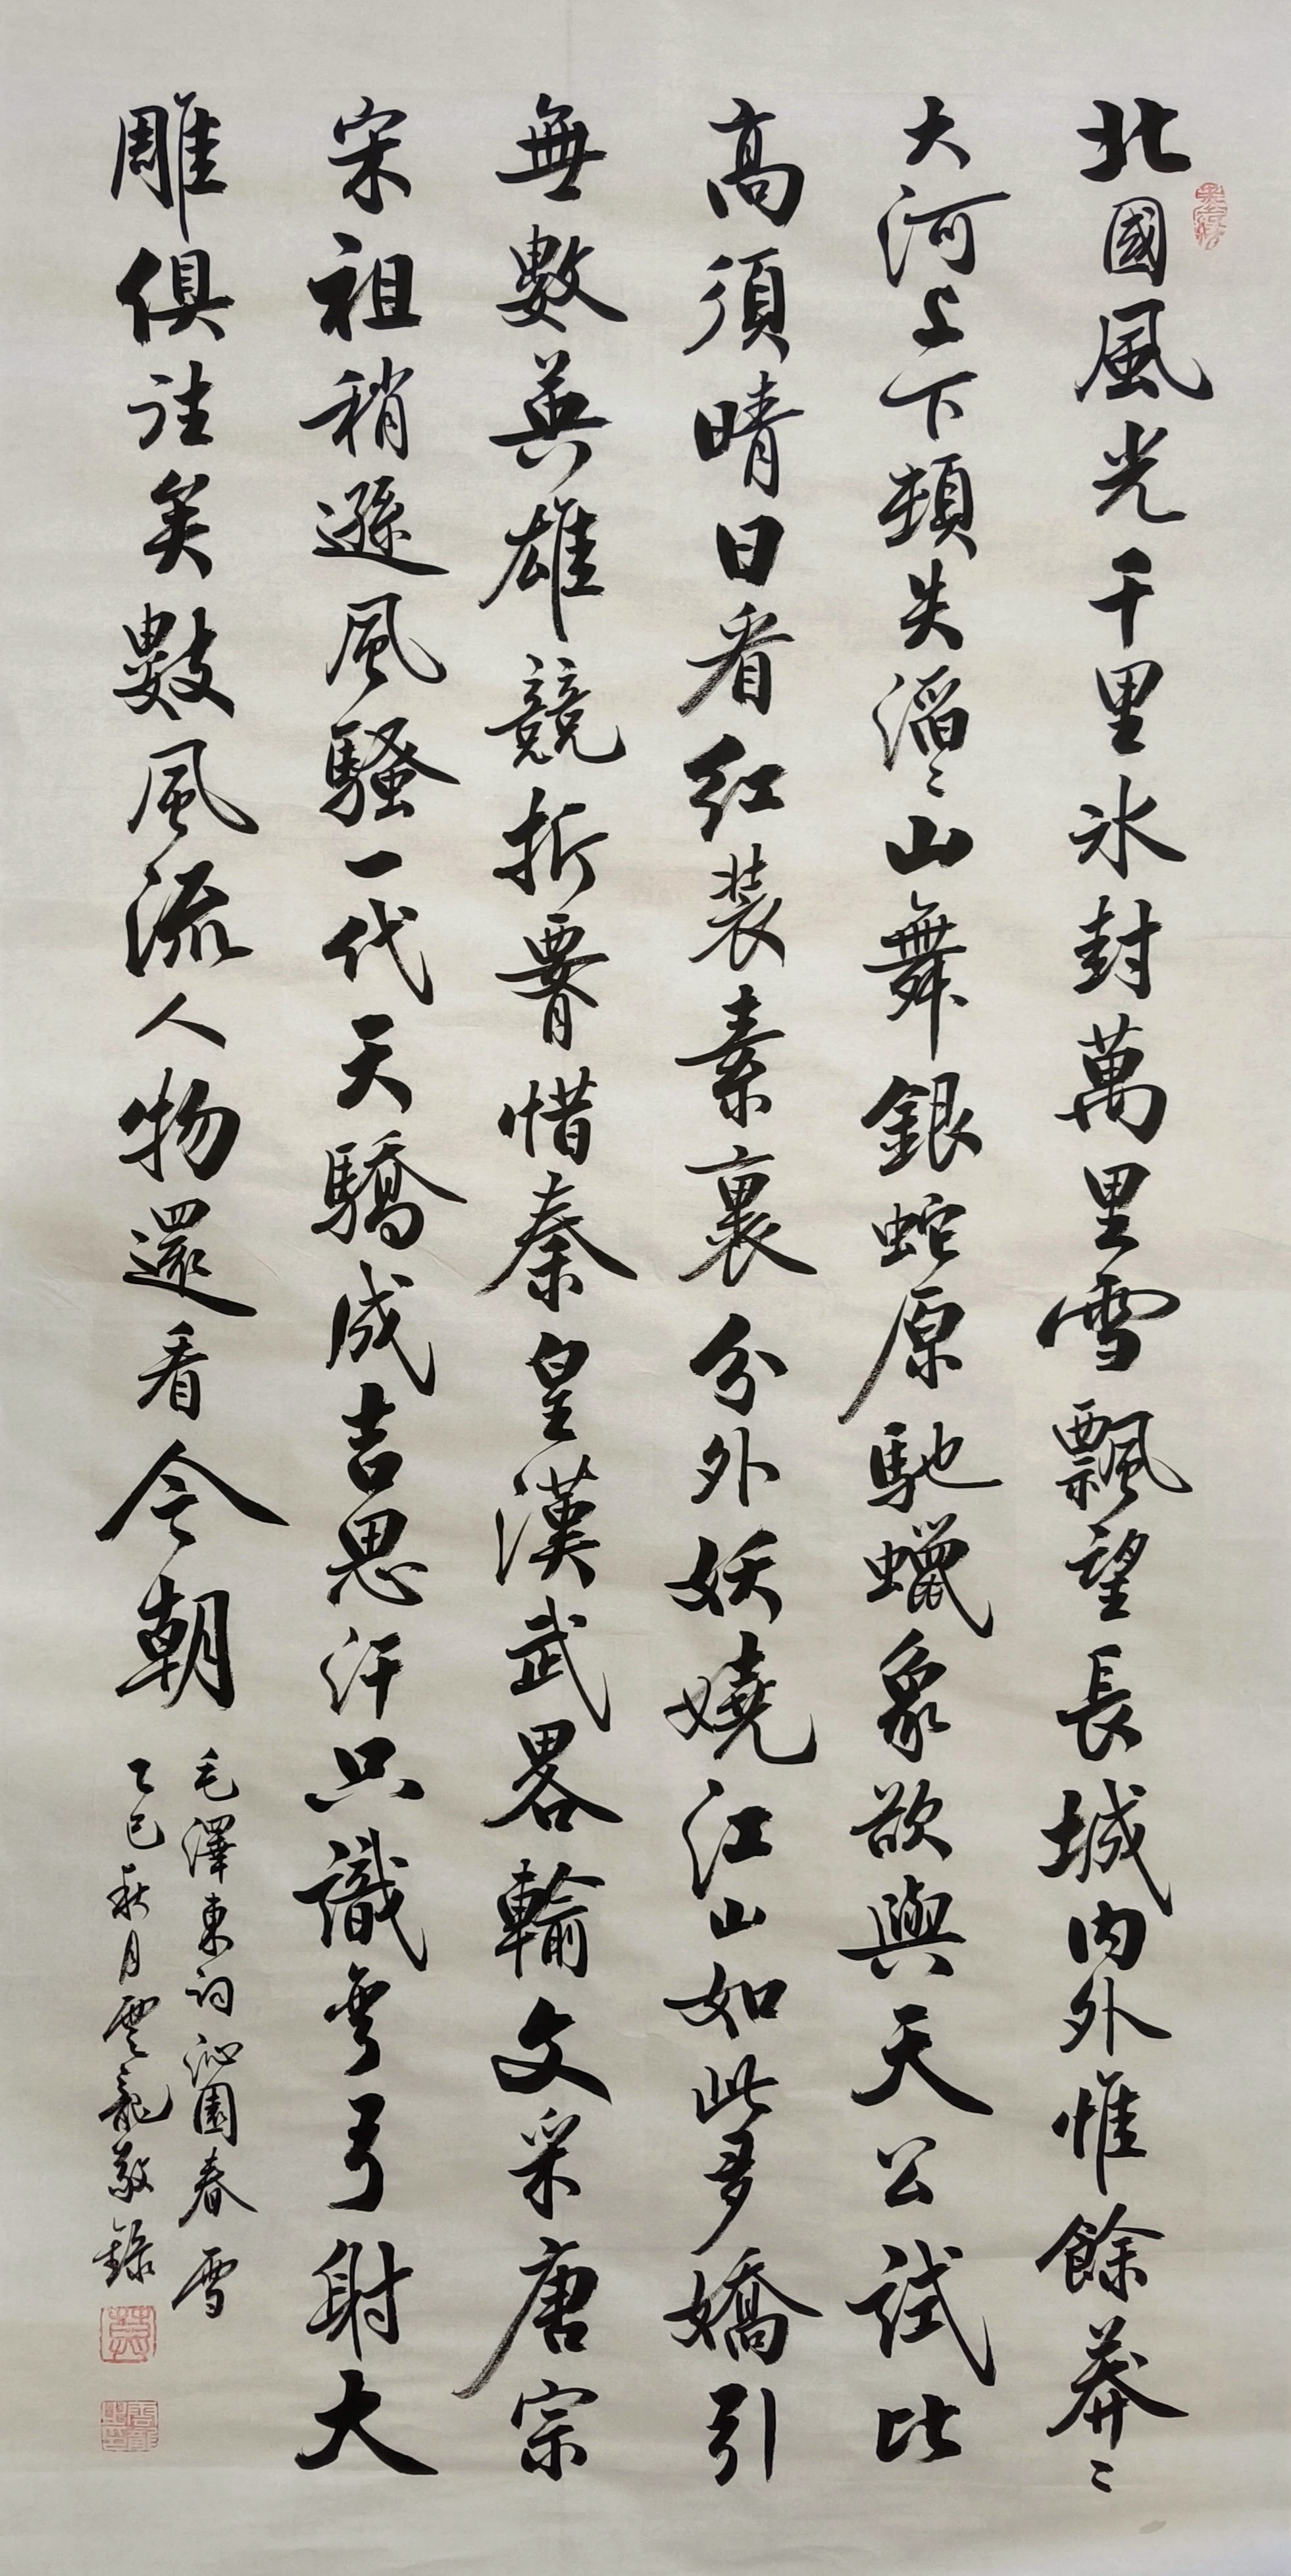 北國風光千里冰封萬里雪飄望長城内外惟餘莽〻
大河上下頓失滔〻山舞銀蛇原馳蠟象欲與天公試比
高須晴日看紅裝素裹分外妖嬈江山如此多嬌引
無數英雄競折腰惜秦皇漢武畧輸文采唐宗
宋祖稍遜風騷一代天驕成吉思汗只識彎弓射大
雕俱往矣數風流人物還看今朝
毛澤東詞沁園春雪
乙巳秋月雲龍敬錄